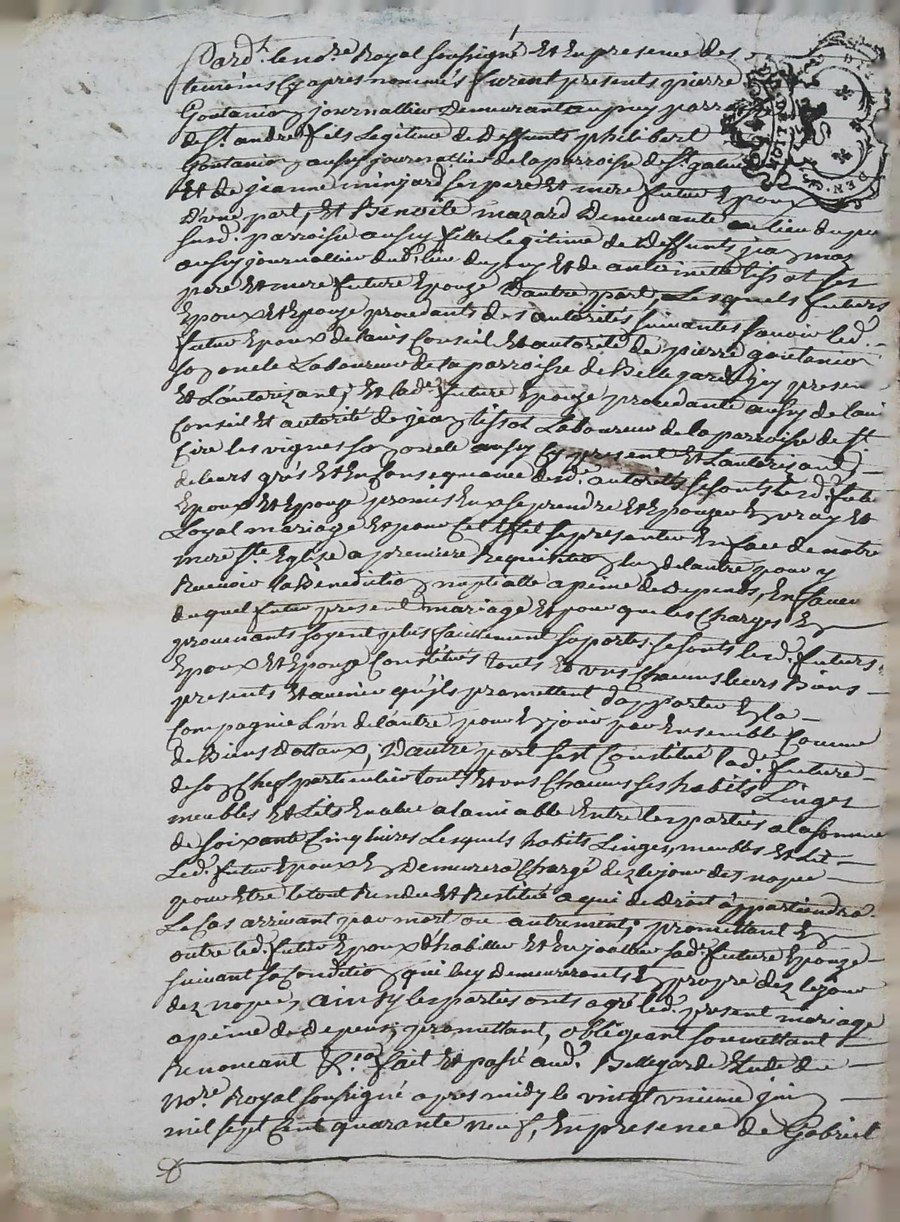 Pard.t le no.re Royal soussigné Et En presence des
temoins Cy apres nommés furent presents pierre
Goutanion journallier Demeurant au puy parr
de S.t andre fils Legitime de Deffunts philibert
Goutanion aussy journallier de la parroisse de S.t galmier
Et de jeanne minjard ses pere Et mere futur Epoux
D'une part, Et Benoite mazard Demeurante au lieu du puy
susd. parroisse aussy fille Legitime de Deffunts jean maz
aussy journallier dud. lieu du puy Et de antoinette tissot ses
pere Et mere future Epouze D'autre part Lesquels futurs
Epoux Et Epouze procedants des autorités suivantes scavoir led.
futur Epoux de lavis Conseil Et autorité de pierre goutanion
son oncle Laboureur de la parroisse de Bellegarde jcy present
Et L'autorizant; Et lad. future Epouze procedante aussy de lavi
Conseil Et autorité de jean tissot Laboureur de la parroisse de St
Cire les vignes son oncle aussy Cy present Et L'autorizant
de leurs grés Et En Consequance desd. autorités se sonts lesd. futu
Epoux Et Epouze promis Eux se prendre Et Epouzer En vray Et
Loyal mariage Et pour Cet Effet se presanter En face de notre
mere Ste Eglise a premiere Requisition lun de lautre pour y
Recevoir la Benediction nuptialle a peine de Depends, En faveur
duquel futur present mariage Et pour que les Charges En
provenants soyent plus facillement suportés se sonts lesd. futurs
Epoux Et Epouze Constitués touts Et uns Chacuns leurs Biens
presents Et avenir qu'jls promettent d'apporter En la
Compagnie L'vn de l'autre pour En jouir par Ensemble Comme
de Biens Dottaux, D'autre part s'est Constitué lad. future
de son Chef particulier touts Et uns Chacuns ses habits Linges
meubles Et Lits Evalué a lamiable Entre les parties a la somme
de soixante Cinq livres Lesquels habits Linges, meubles Et Lit
Led. futur Epoux En Demeurera Chargé dez le jour des nopces
pour Etre le tout Rendu Et Restitué a qui de Droit appartiendra
Le Cas arrivant par mort ou autrement; promettant En
outre led. futur Epoux d'habiller Et Enjoaller sad. future Epouze
suivant sa Condition qui luy Demeureronts En propre dez le jour
dez nopces, ainsy les parties onts agréé led. present mariage
a peine de depens, promettant, obligeant soumettant
Renoncant &.ca fait Et passé aud. Bellegarde Etude du
no.re Royal soussigné apres midy le vingt unieme juin
mil sept Cent quarante neuf, En presence de Gabriel